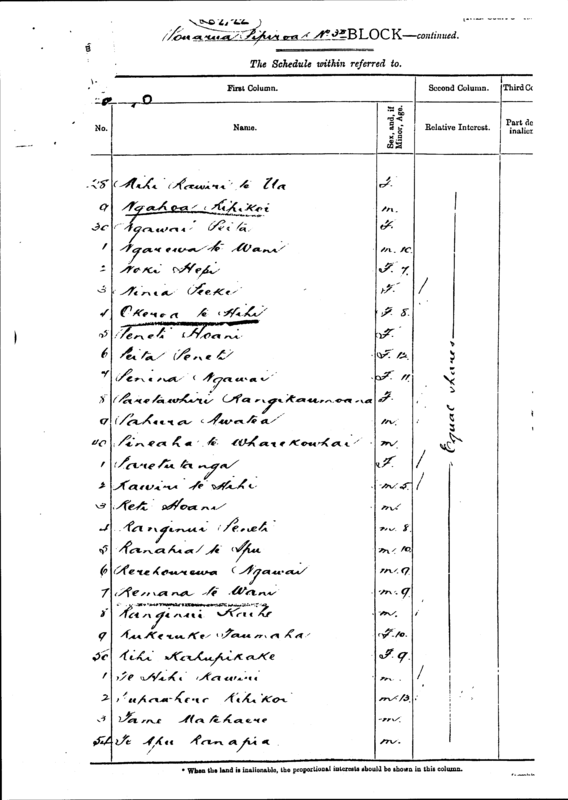 BLOCK—continued.
The Schedule within referred to.
First Column. Second Column. Third
No. Name. Sex, and, if Minor, Age. Relative Interest. Part
28 Mihi Rawiri te Ua F.
9 Ngahoa Kihikoi m.
30 Ngawai Peita F.
1 Ngarewa te Wani m. 10.
2 Noki Hepi F. 7.
3 Ninia F.
4 te Hihi F. 8.
5 Peneti Hoani F.
6 Peita Peneti F. 12.
7 Penina Ngawai F. 11.
8 Paretawhiri Rangikaumoana F.
9 Pahura Awatea m.
40 Pineaha te Wharekowhai m.
1 Paretutanga F.
2 Rawiri te Hihi m. 5.
3 Reti Hoani m.
4 Ranginui Peneti m. 8.
5 Ranapia te Apu m. 10.
6 Ngawai m. 9.
7 Remana te Wani m. 9.
8 Ranginui m.
9 Rukeruke Taumaha F. 10.
50 Rihi Kahupikake F. 9.
1 Te Hihi Rawiri m.
2 Kihikoi m. 13.
3 Tame Matehaere m.
54 Te Apu Ranapia m.
Equal shares
* When the land is inalienable, the proportional interests should be shown in this column.